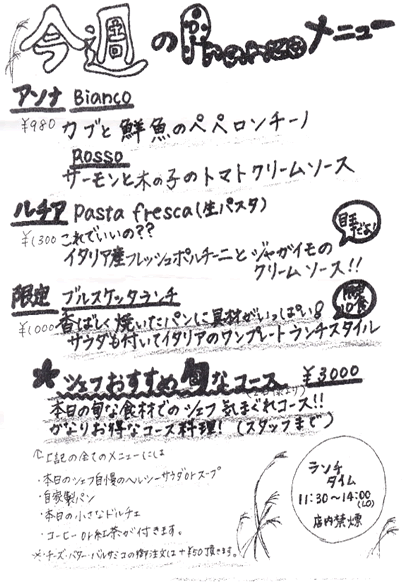 今週の メニュー
アンナ Bianco
¥980 カブと鮮魚のペペロンチーノ
Rosso
サーモンと木の子のトマトクリームソース
ルチア Pasta fresca(生パスタ)
¥1300 これでいいの??
イタリア産フレッシュポルチーニとジャガイモの
クリームソース!!
限定 ブルスケッタランチ
限定10食
¥1000 香ばしく焼いたパンに具材がいっぱい
サラダも付いてイタリアのワンプレートランチスタイル
*シェフおすすめ旬なコース ¥3000
本日の旬な食材でのシェフ気まぐれコース!!
かなりお得なコース料理! (スタッフまで)
上記の全てのメニューには
・本日のシェフ自慢のヘルシーサラダorスープ
・自家製パン
・本日の小さなドルチェ
・コーヒーor紅茶が付きます。
※チーズ・バター・バルサミコの御注文は+¥50頂きます。
ランチ
タイム
11:30〜14:00
(LO)
店内禁煙